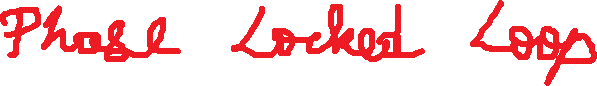 Phase Locked Loop